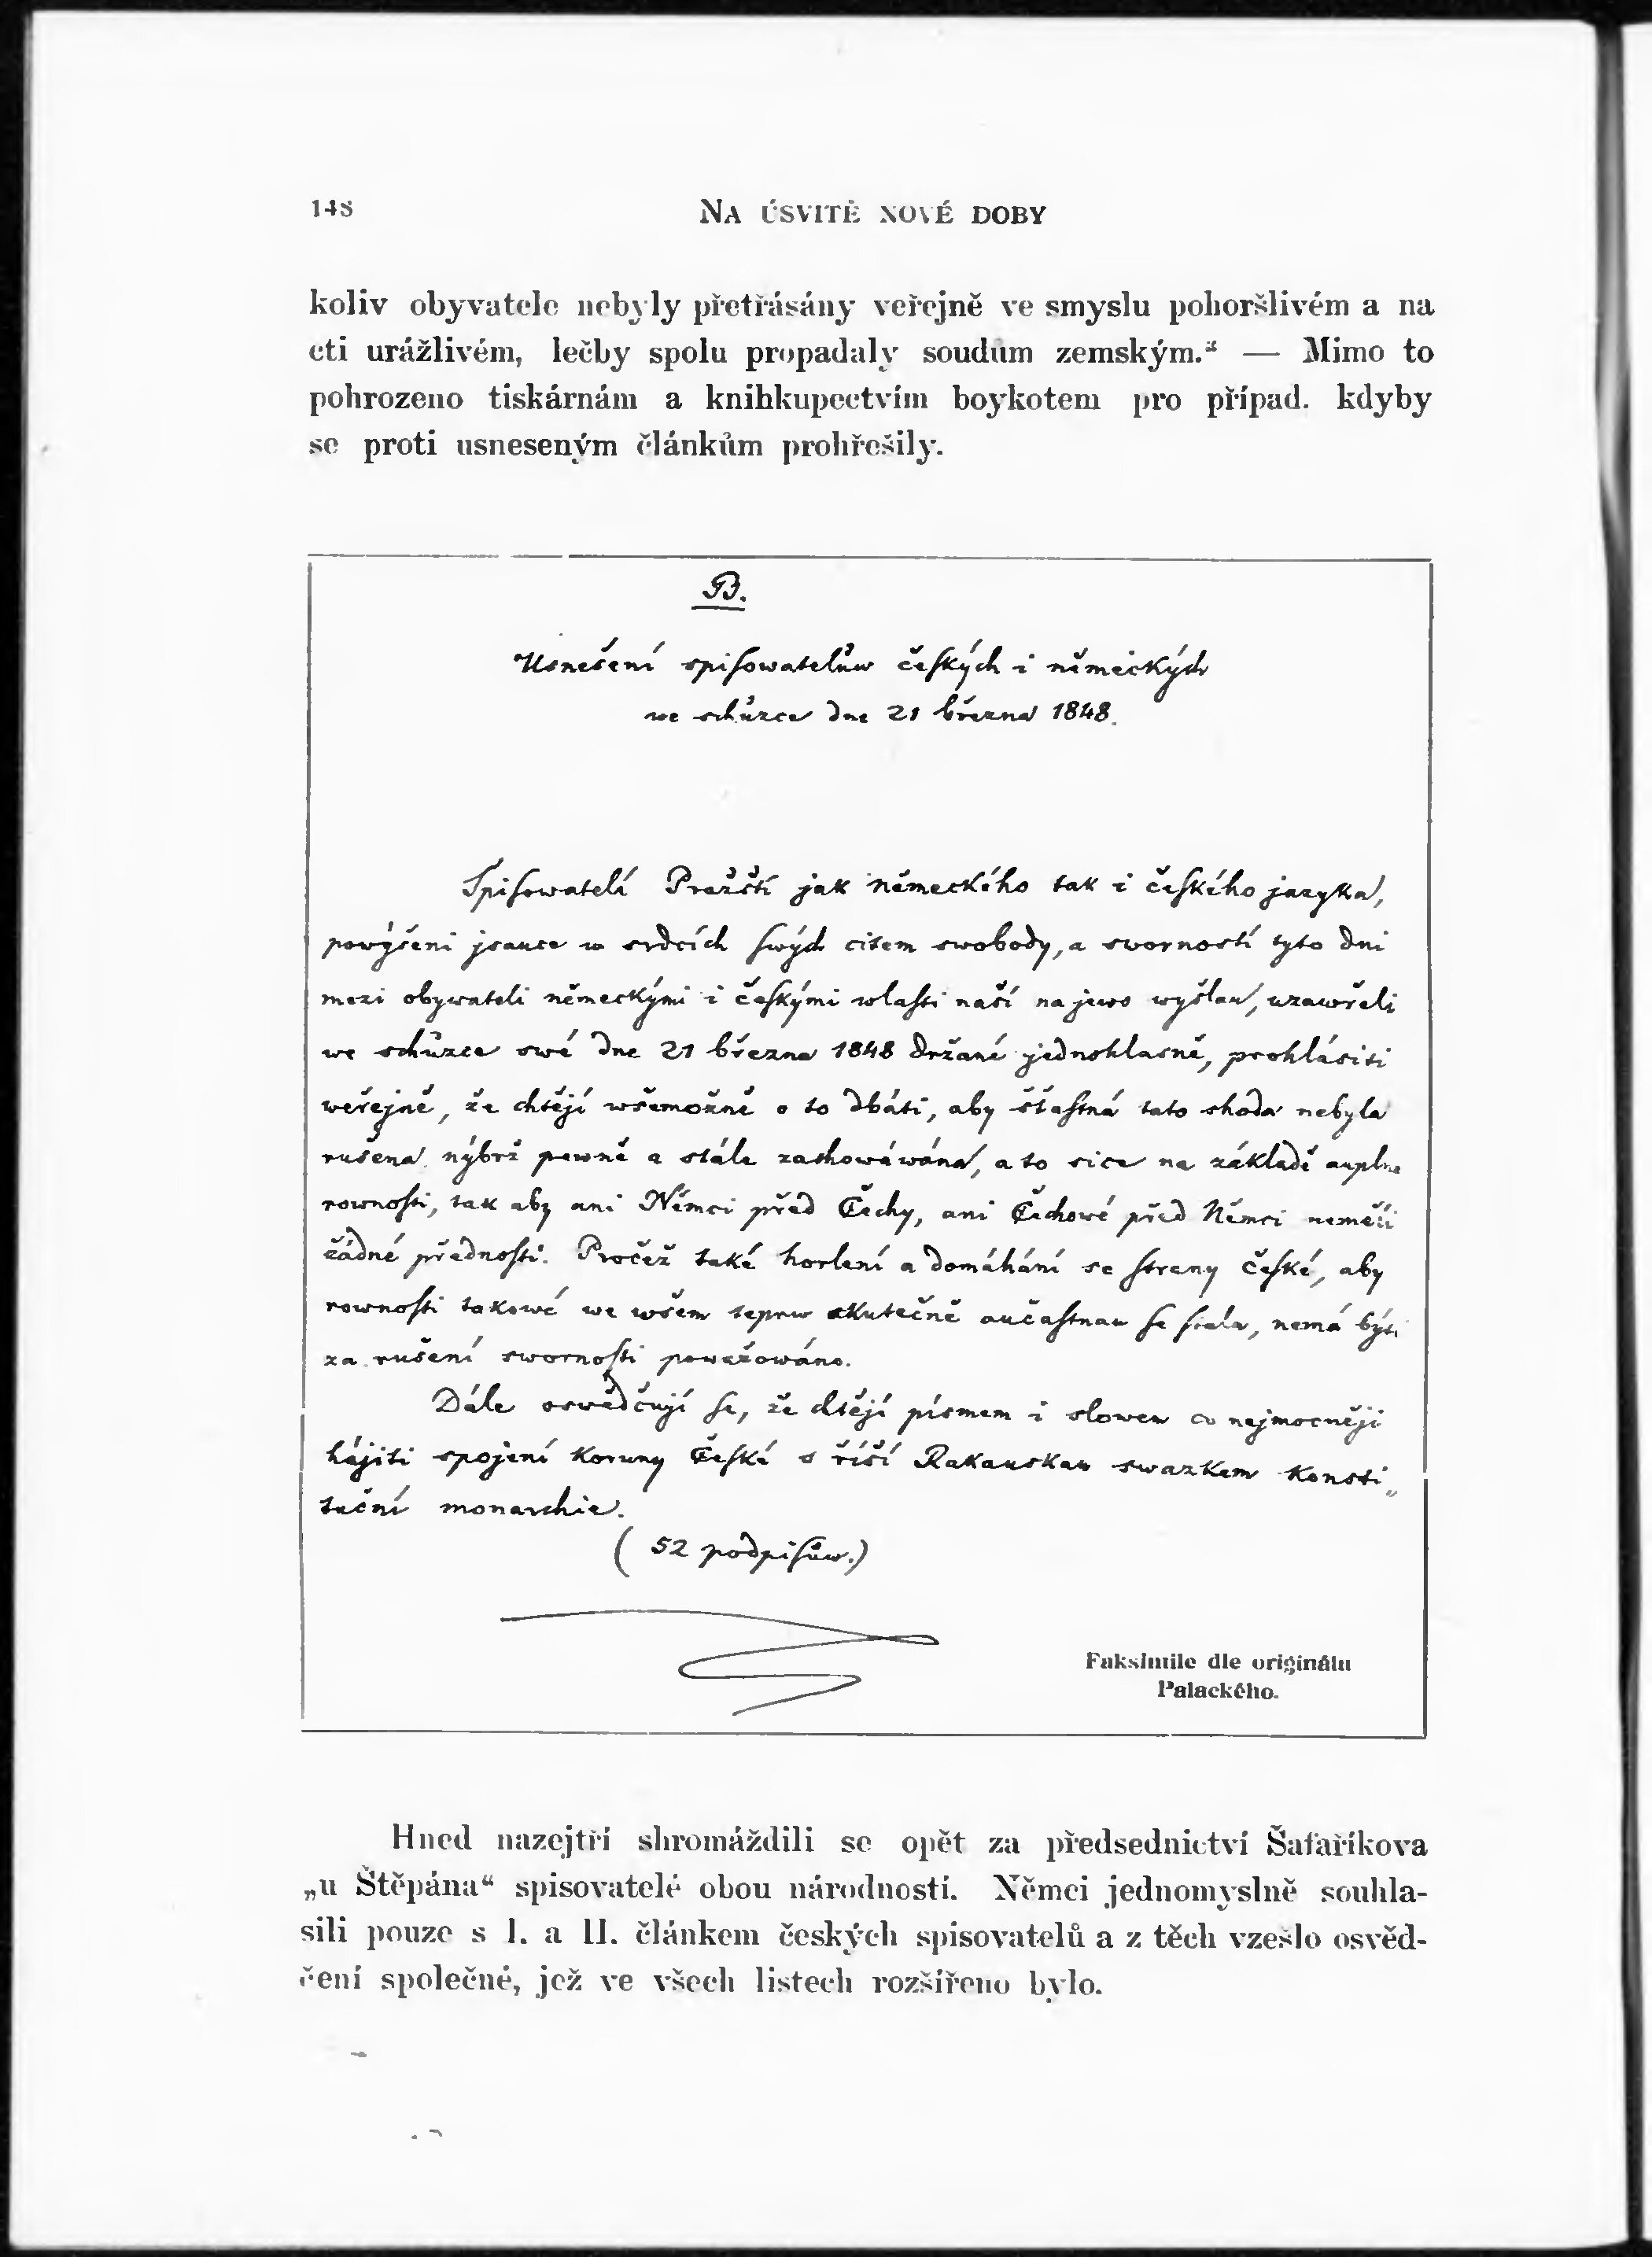 148
NA ÚSVITĚ NOVÉ DOBY
koliv obyvatele nebyly přetřásány veřejně ve smyslu pohoršlivém a na
cti urážlivém, lečby spolu propadaly soudům zemským.“ — Mimo to
pohrozeno tiskárnám a knihkupectvím boykotem pro případ. kdyby
se proti usneseným článkům prohřešily.
B.
Usnešení spiſowatelůw čeſkých i německých
we schůzce dne 21 března 1848.
Spiſowatelé Pražští jak německého tak i čeſkého jazyka,
powýšeni jsauce w srdcích ſwých citem swobody, a sworností tyto dni
mezi obywateli německými i čeſkými wlaſti naší na jewo wyšlau, uzawřeli
we schůzce swé dne 21 března 1848 držané jednohlasně, prohlásiti
weřejně, že chtějí wšemožně o to dbáti, aby šťaſtná tato shoda nebyla
rušena nýbrž pewně a stále zachowáwána, a to sice na základě auplné
rownoſti, tak aby ani Němci před Čechy, ani Čechowé před Němci neměli
žádné přednoſti. Pročež také horlení a domáhání se ſtrany Čeſké, aby
rownoſti takowé we wšem teprw skutečně aučaſtnau ſe ſtala, nemá býti
za rušení swornoſti powažowáno.
Dále oswědčují ſe, že chtějí písmem i slowem co nejmocněji
hájiti spojení Koruny Čeſké s říší Rakauskau swazkem Konsti„
tuční monarchie.
( 52 podpiſůw.)
Faksimile dle originálu
Palackého.
Hned nazejtří shromáždili se opět za předsednictví Šafaříkova
„u Štěpána“ spisovatelé obou národností. Němci jednomyslně souhla-
sili pouze s I. a II. článkem českých spisovatelů a z těch vzešlo osvěd-
čení společné, jež ve všech listech rozšířeno bylo.